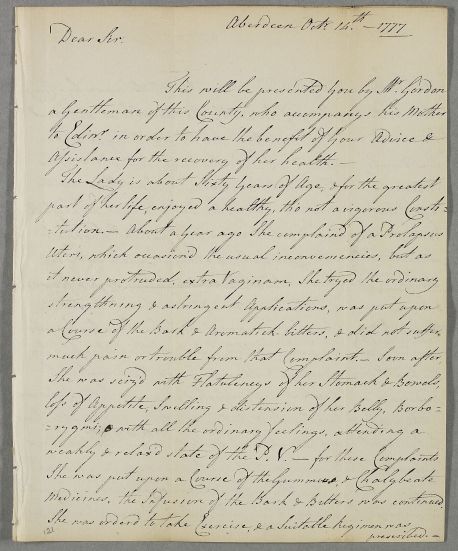 Aberdeen Octr. 14th. – 1777
Dear Sir.
This will be presented you by Mr. Gordon
a Gentleman of this County, who accompanys his Mother
to Edinr. in order to have the benefit of Your Advice &
Assistance for the recovery of her health. –
The Lady is about Sixty Years of Age, & for the greatest
part of her life, enjoyed a healthy, tho not a vigorous Consti-
-tution. – About a Year ago She complaind of a Prolapsus
Uteri, which occasiond the usual inconveniencies, but as
it never protruded, extra Vaginam, She tryed the ordinary
strengthning & astringent Applications, was put upon
a Course of the Bark & Aromatick bitters, & did not suffer
much pain or trouble from that Complaint. – Soon after
She was seizd with Flatulencys of her Stomach & Bowels,
loss of Appetite, Swelling & distension of her Belly, Borbo-
-rygmi, & with all the ordinary feelings, attending a
weakly & relaxd state of the P. V. – for these Complaints
She was put upon a Course of the Gummous, & Chalybeate
Medicines, the Infusion of the Bark & Bitters was continued,
She was orderd to take Exercise, & a Suitable Regimen was
prescribed. –